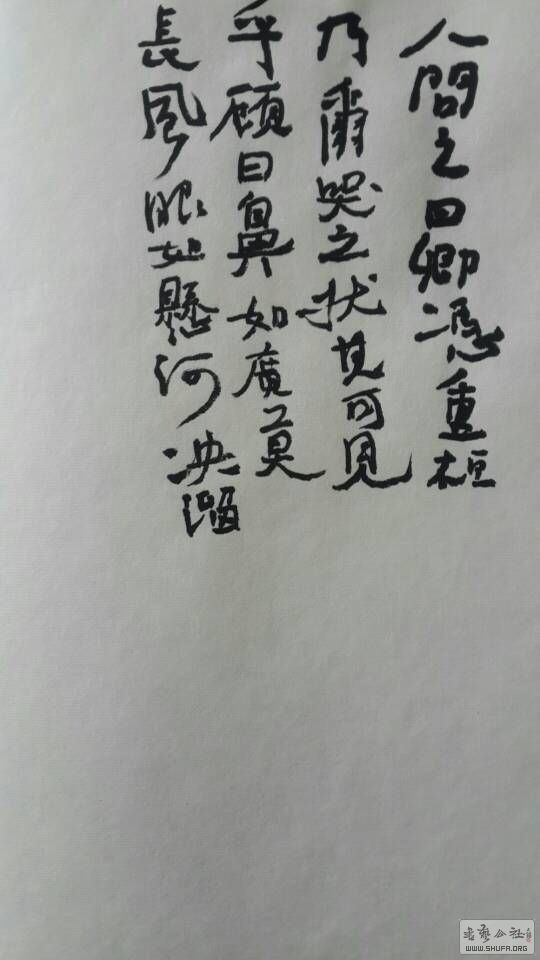 人問之曰卿憑重桓
乃爾哭之狀其可見
乎顧曰鼻如廣莫
長風眼如懸河決溜
WWW.SHUFA.ORG